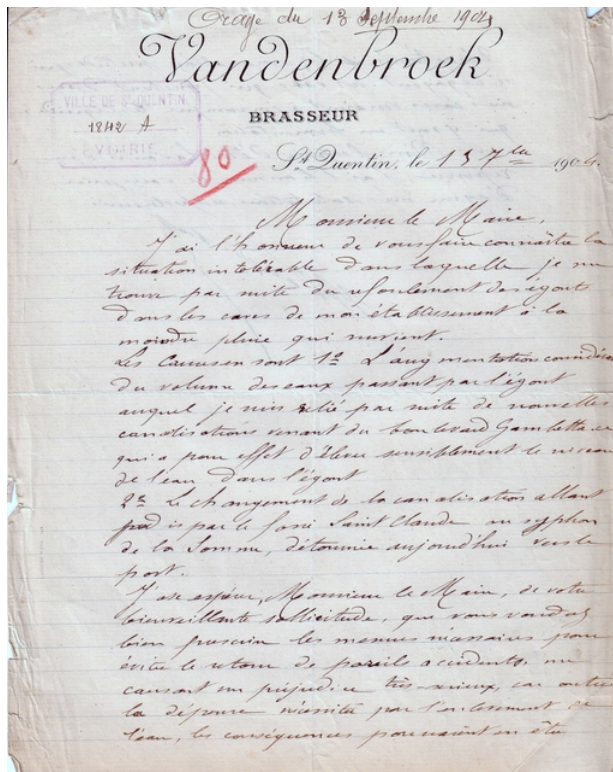 Orage du 13 Septembre 1904
Vandenbroek
BRASSEUR
VILLE DE St QUENTIN
1842 A
VOIRIE
80
St Quentin, le 15 7bre 1904
Monsieur le Maire,
J'ai l'honneur de vous faire connaître la
situation intolérable dans laquelle je me
trouve par suite du refoulement des égouts
dans les caves de mon établissement à la
moindre pluie qui survient.
Les causes en sont 1º L'augmentation
du volume des eaux passant par l'égout
auquel je suis relié par suite de nouvelles
canalisations venant du boulevard Gambetta, ce
qui a pour effet d'élever sensiblement le niveau
de l'eau dans l'égout
2º Le changement de la canalisation allant
jadis par le fossé Saint Claude au syphon
de la Somme, détournée aujourd'hui vers le
port.
J'ose espérer, Monsieur le Maire, de votre
bienveillante sollicitude, que vous voudrez
bien prescrire les mesures nécessaires pour
éviter le retour de pareils accidents, me
causant un préjudice très sérieux, car outre
la dépense nécessitée par l'enlèvement de
l'eau, les conséquences pourraient en être